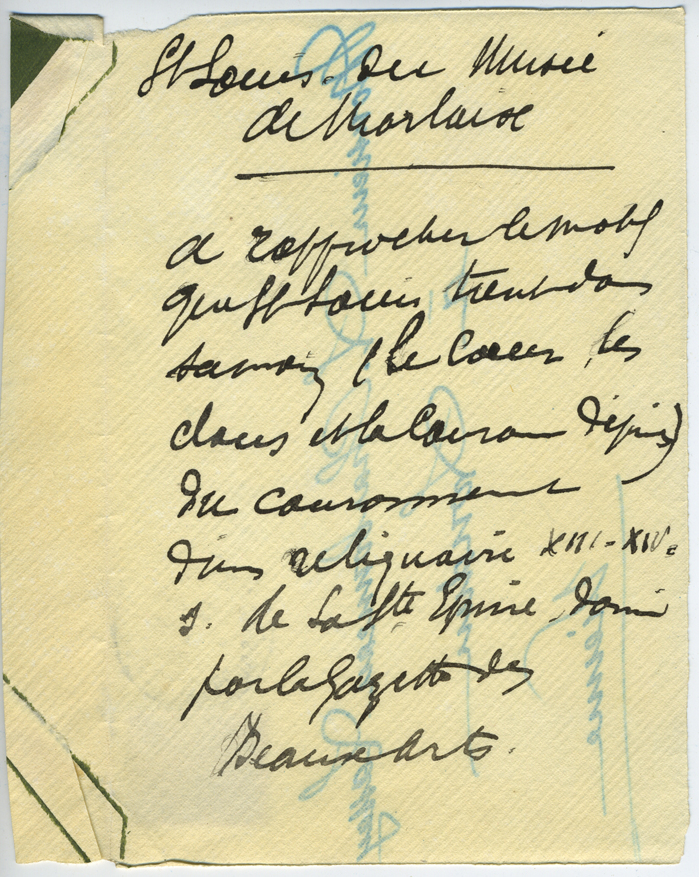 St Louis du Musée
de Morlaix
à rapprocher le motif
que St Louis tient dans
sa main (le Coeur, les
clous et la Couronne d'épines)
du couronnement
d'un reliquaire XIII-XIVe
s. de la Ste Epine, donné
par la Gazette des
Beaux Arts.